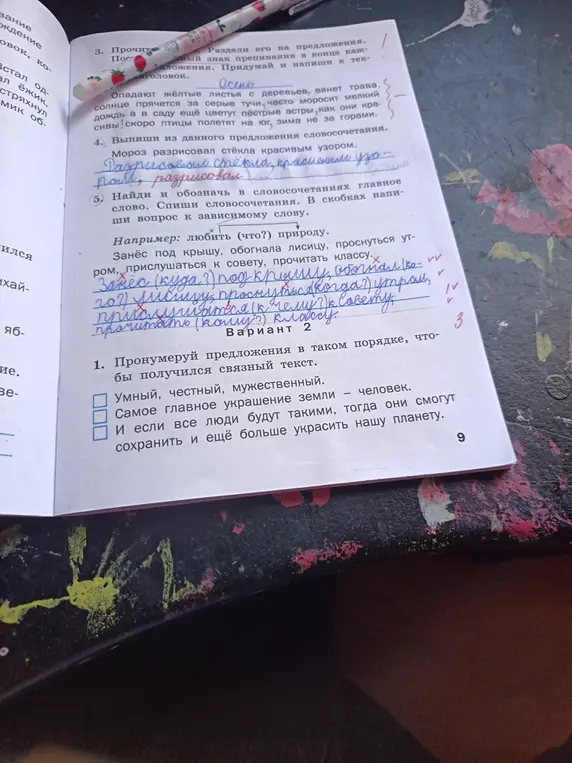 вание
ждение
овок, ко-
Встал од
ал ёжик.
стряхнул
мик об.
ился
ихай-
яб-
ие.
ве-
3. Прочит Раздели его на предложения.
Пос ный знак препинания в конце каж-
ложения. Придумай и напиши к тек-
аголовок.
Осень
Опадают жёлтые листья с деревьев, вянет трава,
солнце прячется за серые тучи, часто моросит мелкий
дождь а в саду ещё цветут пёстрые астры, как они кра-
сивы! скоро птицы полетят на юг, зима не за горами.
4. Выпиши из данного предложения словосочетания.
Мороз разрисовал стёкла красивым узором.
Разрисовал стёкла, красивым узо-
ром, разрисовал
5. Найди и обозначь в словосочетаниях главное
слово. Спиши словосочетания. В скобках напи-
ши вопрос к зависимому слову.
Например: любить (что?) природу.
Занёс под крышу, обогнала лисицу, проснуться ут-
ром, прислушаться к совету, прочитать классу.
Занёс (куда?) под крышу, обогнал (ко-
го?) лисицу, проснуться (когда?) утром,
прислушаться (к чему?) к совету,
прочитать (кому?) классу.
3
Вариант 2
1. Пронумеруй предложения в таком порядке, что-
бы получился связный текст.
Умный, честный, мужественный.
Самое главное украшение земли – человек.
И если все люди будут такими, тогда они смогут
сохранить и ещё больше украсить нашу планету.
9